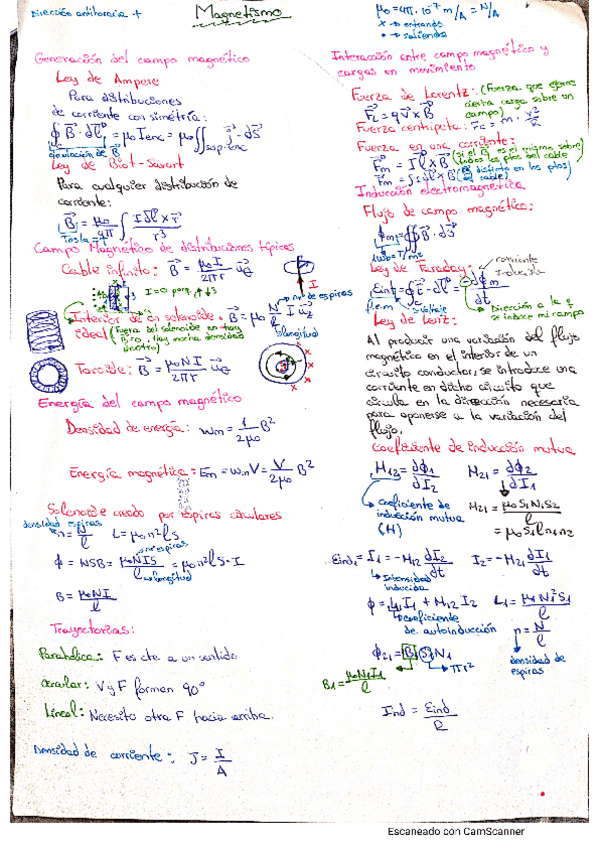 Dirección antihoraria +
Magnetismo
μ₀ = 4π · 10⁻⁷ m/A = N/A
x → entrando
• → saliendo
Generación del campo magnético
Ley de Ampere
Para distribuciones
de corriente con simetría:
∮ B⃗ · dl⃗ = μ₀ Ienc = μ₀ ∬sup.enc j⃗ · dS⃗
circulación de B
Ley de Biot-Savart
Para cualquier distribución de
corriente:
B⃗ = μ₀/4π ∫ I dl⃗ × r⃗ / r³
Tesla = T
Campo Magnético de distribuciones típicas
Cable infinito: B⃗ = μ₀I/2πr u⃗θ
I
I = 0 porq.
nº de espiras
Interior de un solenoide: B⃗ = μ₀ N/l I u⃗z
ideal (Fuera del solenoide no hay
dentro)
longitud
Toroide: B⃗ = μ₀NI/2πr u⃗θ
Energía del campo magnético
Densidad de energía: wm = 1/2μ₀ B²
Energía magnética: Em = wm V = V/2μ₀ B²
Solenoide creado por espiras circulares
densidad espiras
n = N/l L = μ₀n²lS
nº espiras
ϕ = NSB = μ₀NIS/l = μ₀n²lS · I
longitud
B = μ₀NI/l
Trayectorias:
Parabólica: F es cte a un sentido
Circular: V y F forman 90°
Lineal: Necesito otra F hacia arriba.
Densidad de corriente: J = I/A
Interacción entre campo magnético y
cargas en movimiento
Fuerza de Lorentz: (Fuerza que ejerce
cierta carga sobre un
campo)
F⃗L = q V⃗ × B⃗
Fuerza centrípeta: F⃗c = m · v²/R
Fuerza en una corriente:
F⃗m = I l⃗ × B⃗ (si el B es el mismo sobre
todos los ptos del cable)
F⃗m = ∫ I dl⃗ × B⃗ (B es distinto en los ptos
del cable)
Inducción electromagnética
Flujo de campo magnético:
ϕm = ∬ B⃗ · dS⃗
Weber = T/m²
Ley de Faraday:
corriente
inducida
Eind = ∮ E⃗ · dl⃗ = - dϕm/dt
f.e.m voltaje
Dirección a la q
se induce mi campo
Ley de Lenz:
Al producir una variación del flujo
magnético en el interior de un
circuito conductor, se introduce una
corriente en dicho circuito que
circula en la dirección necesaria
para oponerse a la variación del
flujo.
Coeficiente de inducción mutua
M12 = ∂ϕ1/∂I2 M21 = ∂ϕ2/∂I1
coeficiente de
inducción mutua
(H)
M21 = μ₀S1N1S2/l
= μ₀S1ln1n2
Eind1 = I1 = -M12 ∂I2/∂t I2 = -M21 ∂I1/∂t
Intensidad
inducida
ϕ = L1I1 + M12I2 L1 = μ₀N1²S1/l
coeficiente
de autoinducción
n = N/l
densidad de
espiras
ϕ21 = B1S1N1
πr²
B1 = μ₀N1I1/l
Ind = Eind/R
Escaneado con CamScanner